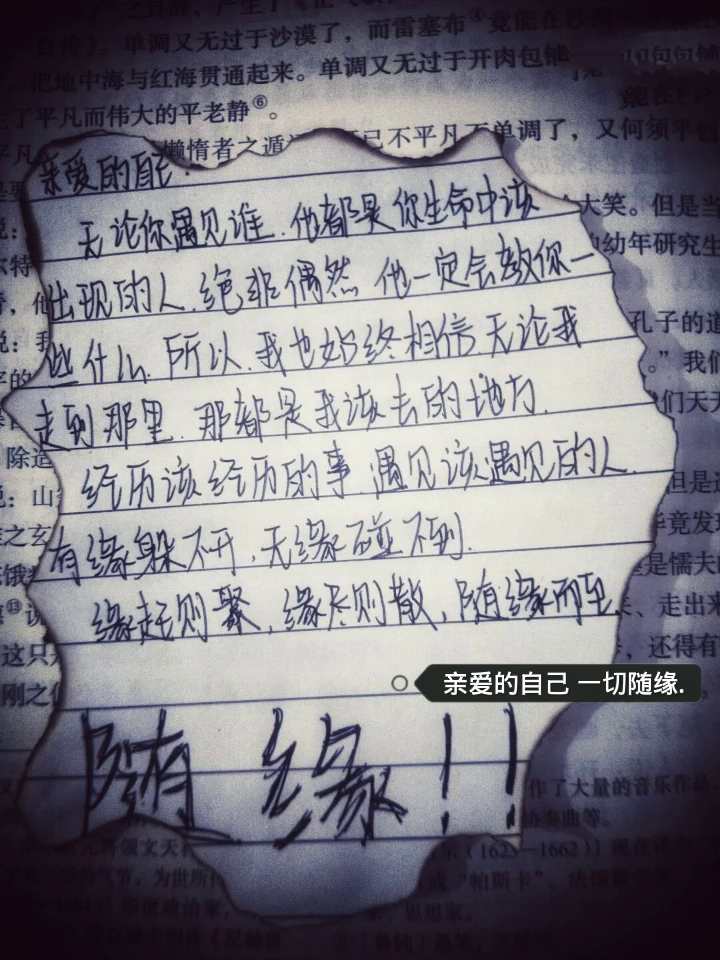 单调又无过于沙漠了，而雷塞布④竟能在沙
把地中海与红海贯通起来。单调又无过于开肉包铺
了平凡而伟大的平老静⑥。
懒惰者之遁
已不平凡
单调了，又何须平
亲爱的自己：
无论你遇见谁.他都是你生命中该
出现的人.绝非偶然.他一定会教你一
些什么.所以.我也始终相信.无论我
走到那里.那都是我该去的地方.
经历该经历的事.遇见该遇见的人.
有缘躲不开,无缘碰不到.
缘起则聚,缘尽则散,随缘而至
亲爱的自己 一切随缘.
随缘!!
大笑。但是当
幼年研究生
孔子的道
。”我们
们天天
但是
是懦夫
走出来
还得有
作了大量的音乐作品
协奏曲等。
(1623—1662)
或“帕斯卡”。法国
思想家。